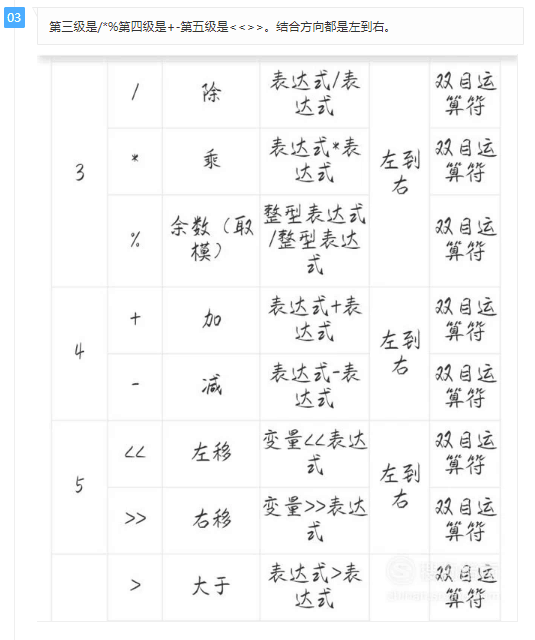 03
第三级是/*%第四级是+-第五级是<<>>。结合方向都是左到右。
/ 除 表达式/表达式 双目运算符
3 * 乘 表达式*表达式 左到右 双目运算符
% 余数（取模） 整型表达式/整型表达式 双目运算符
+ 加 表达式+表达式 双目运算符
4 左到右
- 减 表达式-表达式 双目运算符
<< 左移 变量<<表达式 双目运算符
5 左到右
>> 右移 变量>>表达式 双目运算符
> 大于 表达式>表达式 双目运算符